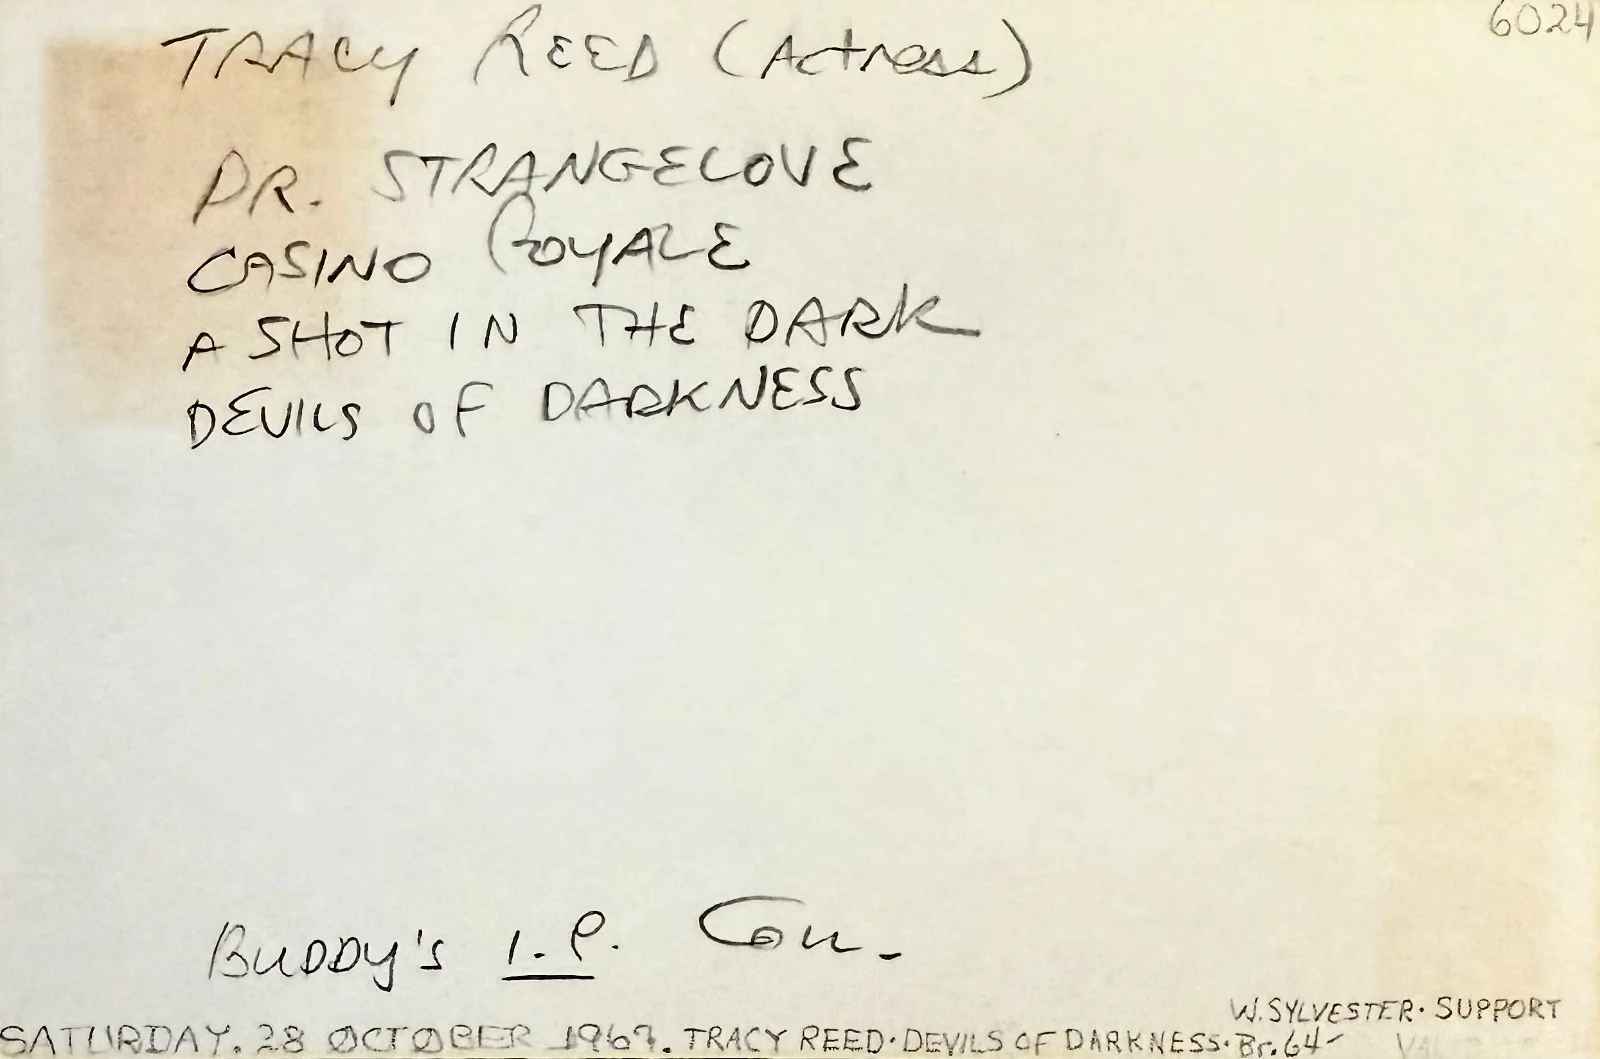 6024
TRACY REED (Actress)
DR. STRANGELOVE
CASINO ROYALE
A SHOT IN THE DARK
DEVILS OF DARKNESS
BUDDY'S I.P. Coll.
W. SYLVESTER. SUPPORT
SATURDAY. 28 OCTOBER 1967. TRACY REED. DEVILS OF DARKNESS. Br. 64-